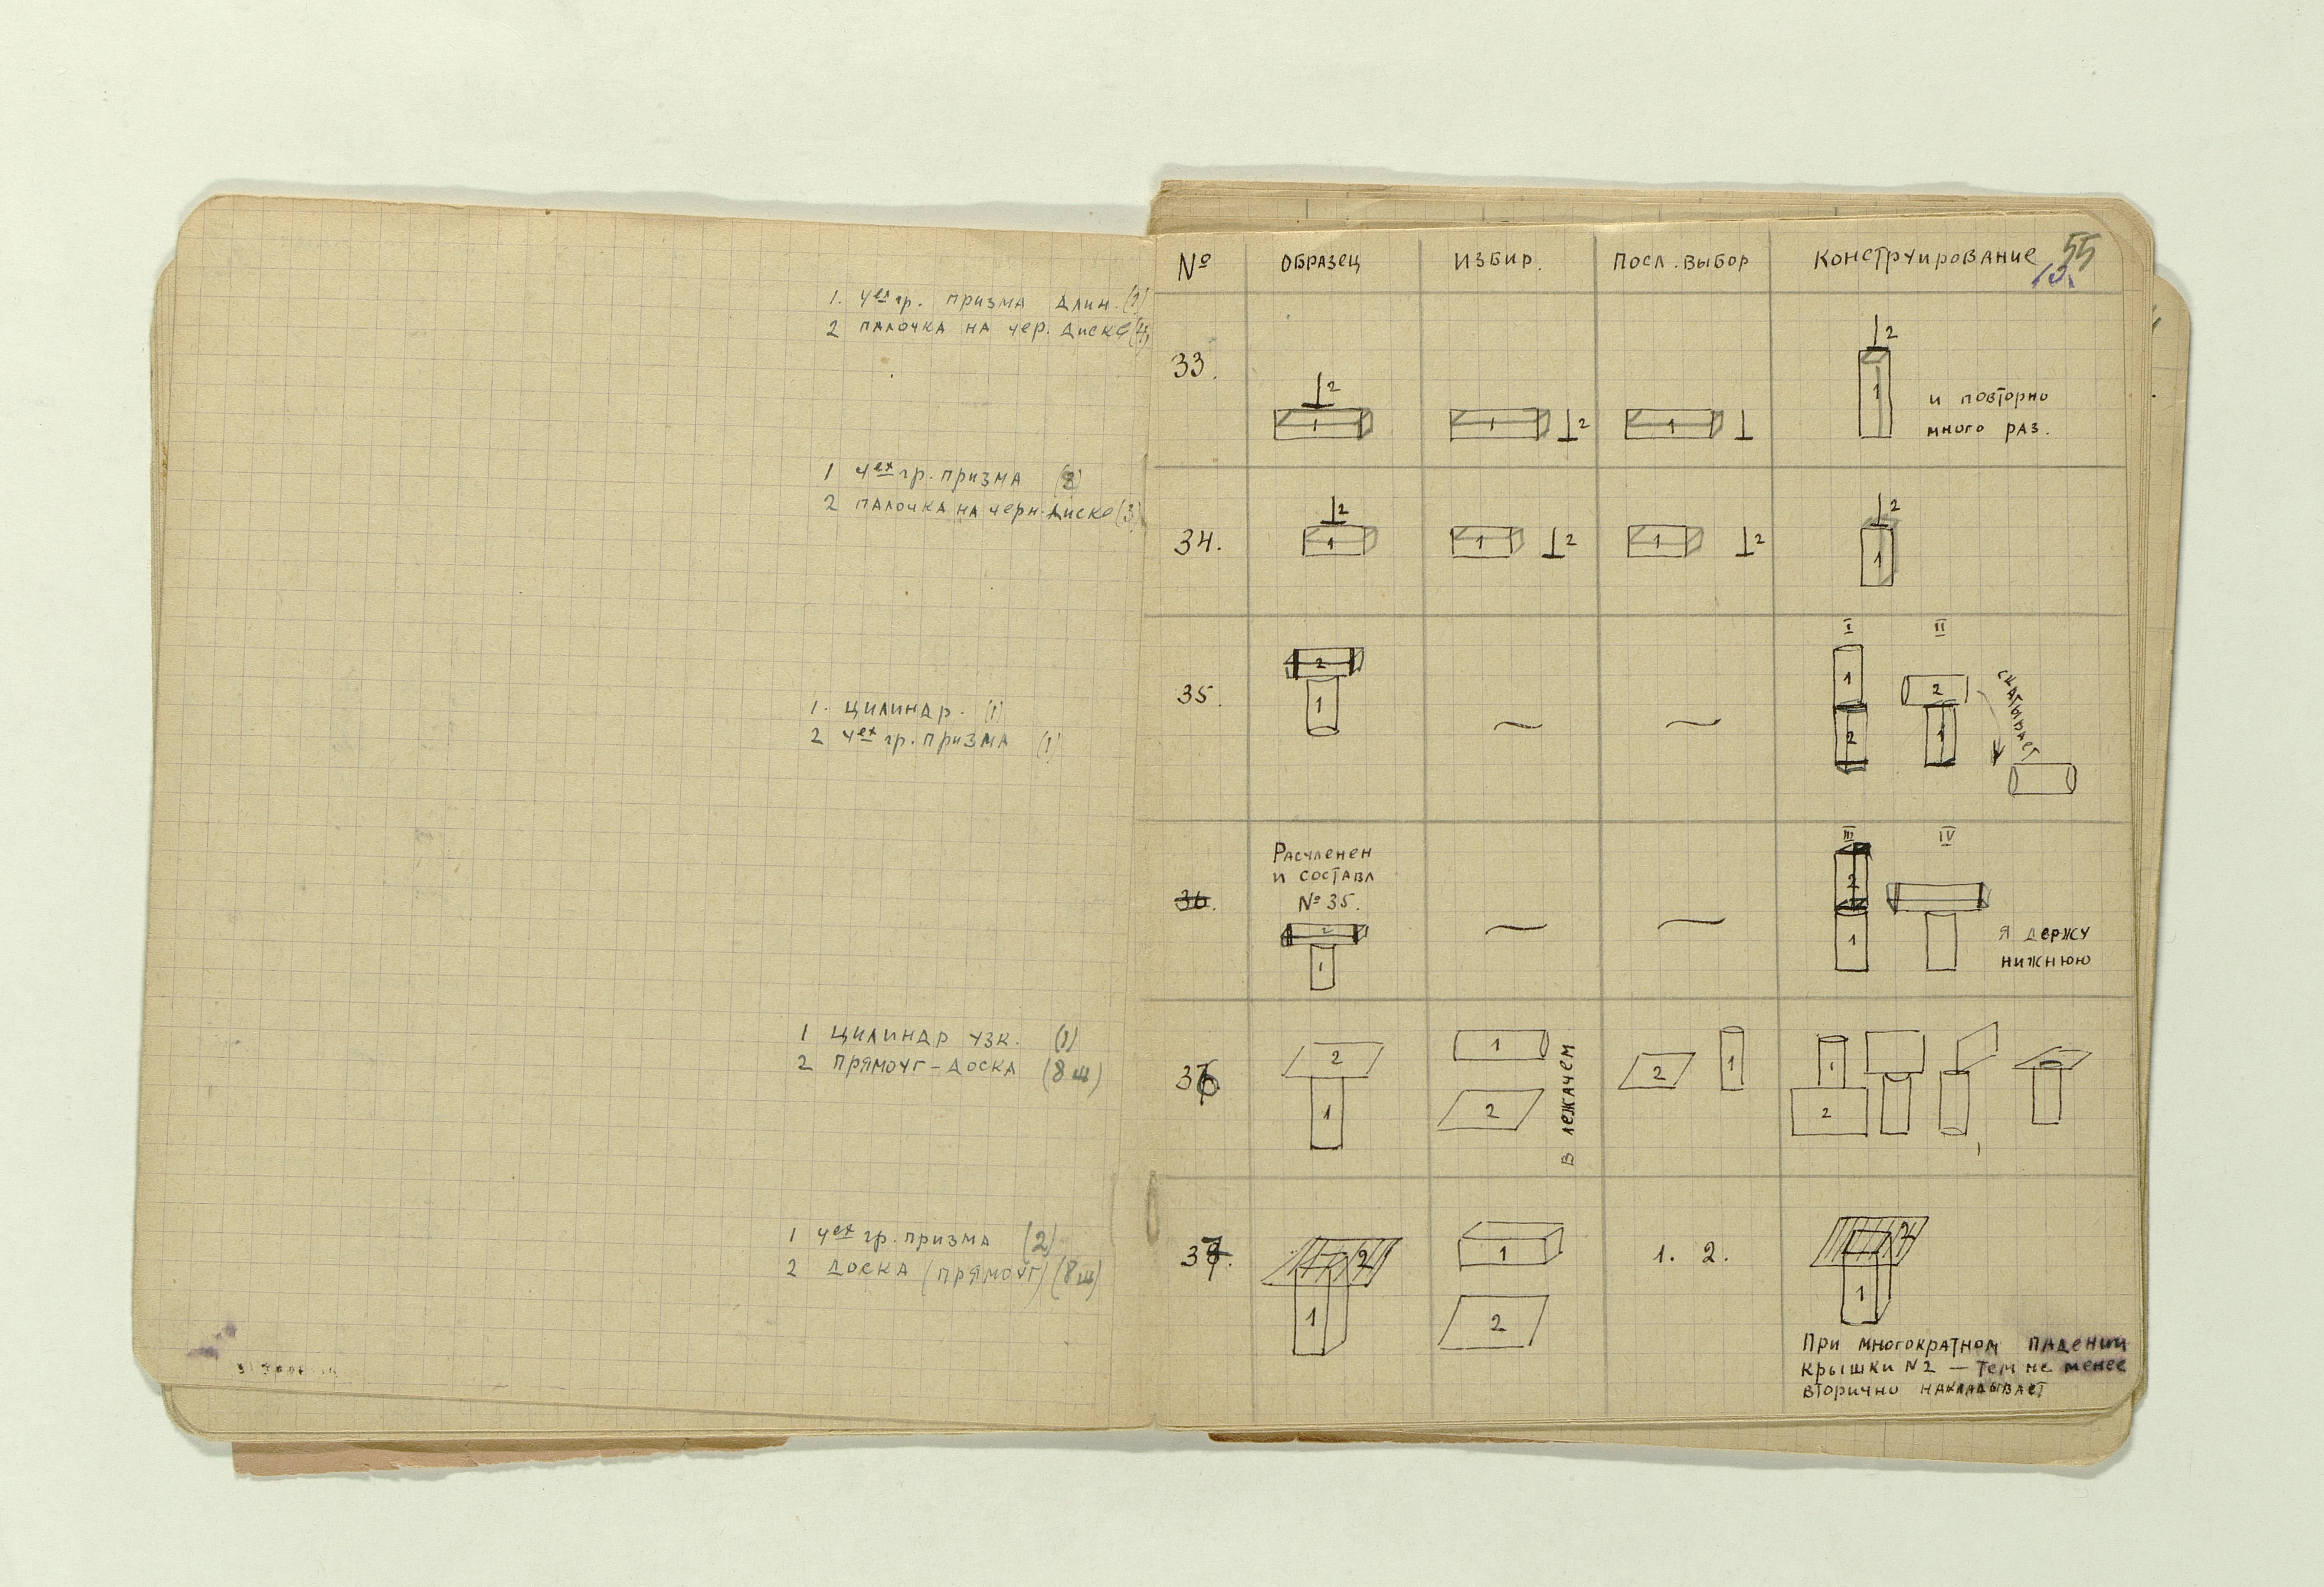 1. 4ех гр. призма длин. (1)
2 палочка на чер. диске (4)
1 4ех гр. призма (2)
2 палочка на черн. диске (3)
1. цилиндр. (1)
2 4ех гр. призма (1)
1 цилиндр узк. (1)
2 прямоуг-доска (8ш)
1 4ех гр. призма (2)
2 доска (прямоуг) (8ш)
55
№ ОБРАЗЕЦ ИЗБИР. ПОСЛ. ВЫБОР КОНСТРУИРОВАНИЕ
33.
2
1
1 2
1
2
1
и повторно
много раз.
34.
2
1
1 2
1 2
2
1
35.
2
1
I II
1
2
2
1
скатывает
36.
Расчленен
и составл
№ 35.
2
1
III IV
2
1
я держу
нижнюю
36
2
1
1
2
в лежачем
2 1
1
2
37.
2
1
1
2
1. 2.
2
1
При многократном падении
крышки N2 — тем не менее
вторично накладывает